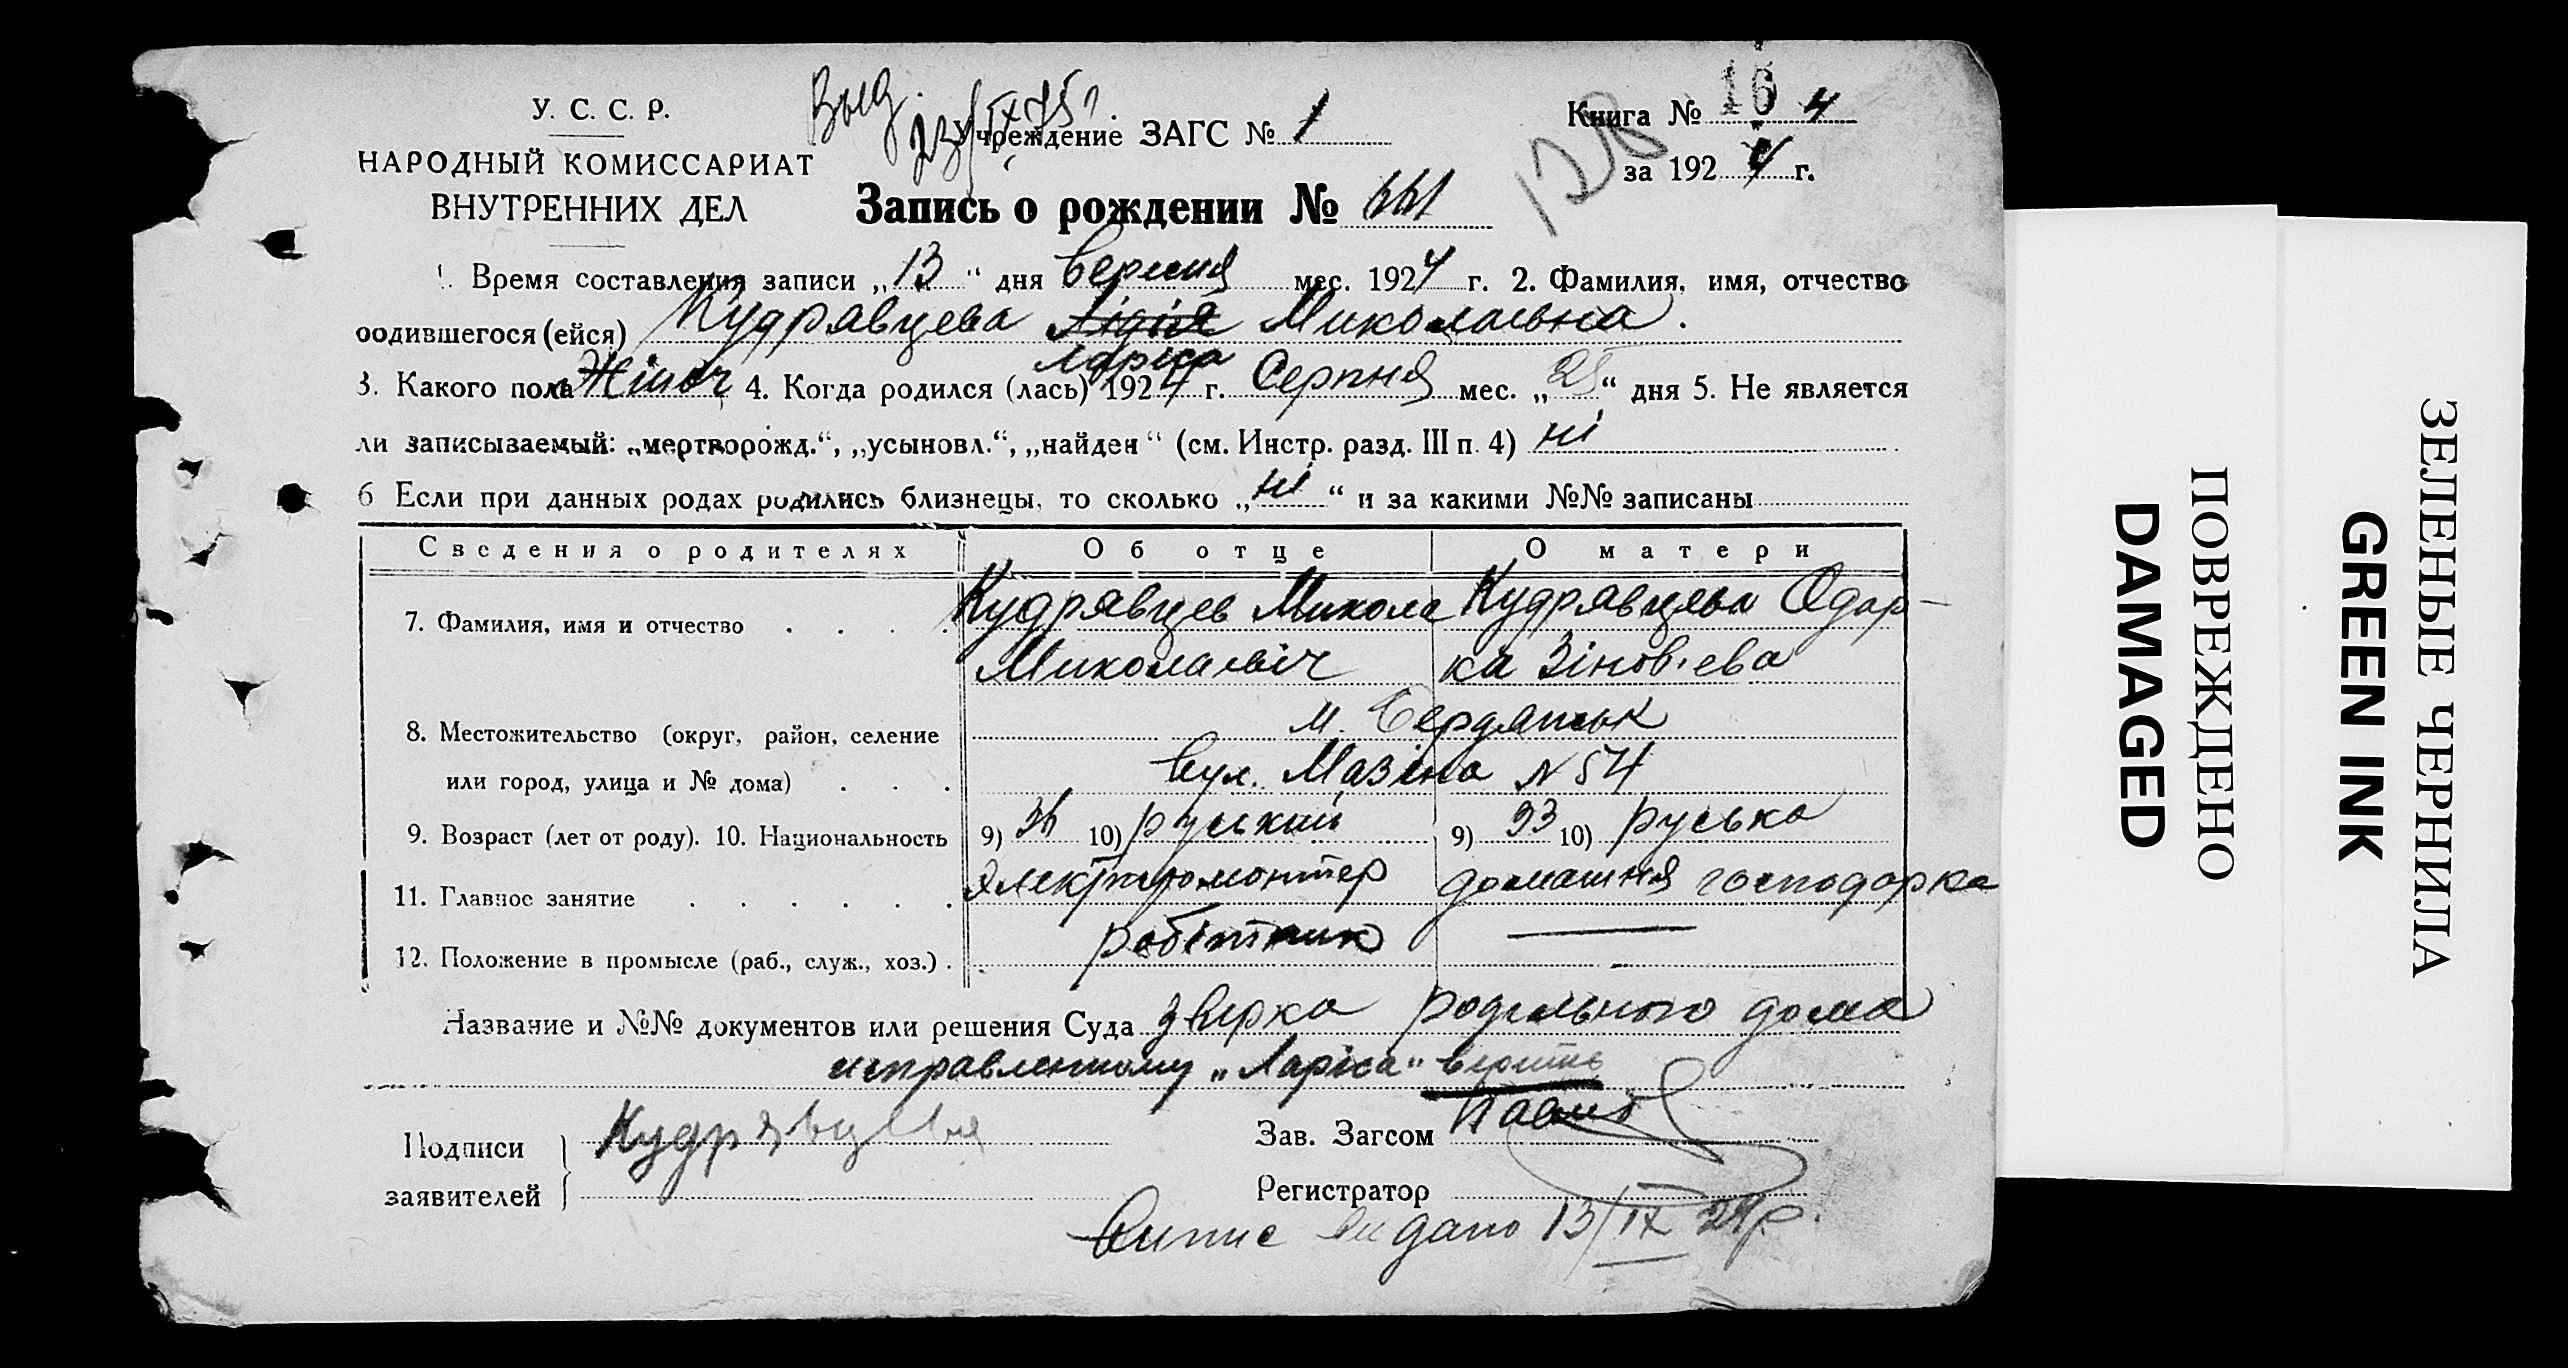 У. С. С. Р.
НАРОДНЫЙ КОМИССАРИАТ
ВНУТРЕННИХ ДЕЛ
Выд. 23/IX 75 г.
Учреждение ЗАГС № 1
Книга № 16 4
за 1924 г.
128
Запись о рождении № 661
1. Время составления записи „13“ дня вересня мес. 1924 г. 2. Фамилия, имя, отчество
родившегося (ейся) Кудрявцева Лідія Миколаівна.
Ларіса
3. Какого пола Жіноч 4. Когда родился (лась) 1924 г. Серпня мес. „25“ дня 5. Не является
ли записываемый: „мертворожд.“, „усыновл.“, „найден“ (см. Инстр. разд. III п. 4) ні
6 Если при данных родах родились близнецы, то сколько „ні“ и за какими №№ записаны
Сведения о родителях Об отце О матери
7. Фамилия, имя и отчество . . . . Кудрявцев Микола Кудрявцева Одар-
Миколаевіч ка Зінов'ева
8. Местожительство (округ, район, селение м. Бердянськ
или город, улица и № дома) . . . вул. Мазіна № 54
9. Возраст (лет от роду). 10. Национальность 9) 36 10) руський 9) 33 10) руська
11. Главное занятие . . . . . . Электромонтер домашня господарка
12. Положение в промысле (раб., служ., хоз.) . робітник —
Название и №№ документов или решения Суда з родильного дома
исправленному „Ларіса“ верить
Подписи
заявителей
Кудрявцева
Зав. Загсом
Регистратор
Випис видано 13/IX 24 р.
ПОВРЕЖДЕНО
DAMAGED
ЗЕЛЕНЫЕ ЧЕРНИЛА
GREEN INK